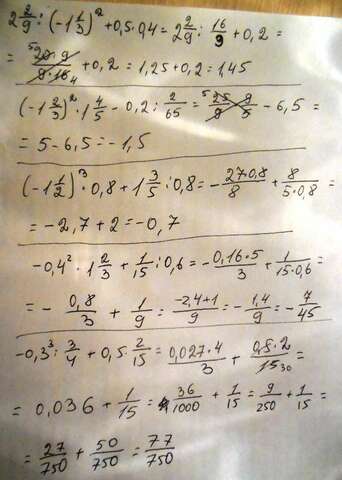 2 2/9 : (-1 1/3)² + 0,5·0,4 = 2 2/9 : 16/9 + 0,2 =
= 5 20·9/9·16 4 + 0,2 = 1,25 + 0,2 = 1,45
(-1 2/3)² · 1 4/5 - 0,2 : 2/65 = 5 25/9 9/5 - 6,5 =
= 5 - 6,5 = -1,5
(-1 1/2)³ · 0,8 + 1 3/5 : 0,8 = - 27·0,8/8 + 8/5·0,8 =
= -2,7 + 2 = -0,7
-0,4² · 1 2/3 + 1/15 : 0,6 = - 0,16·5/3 + 1/15·0,6 =
= - 0,8/3 + 1/9 = -2,4+1/9 = - 1,4/9 = - 7/45
-0,3³ : 3/4 + 0,5 · 2/15 = 0,027·4/3 + 0,5·2/15 30 =
= 0,036 + 1/15 = 36/1000 + 1/15 = 9/250 + 1/15 =
= 27/750 + 50/750 = 77/750